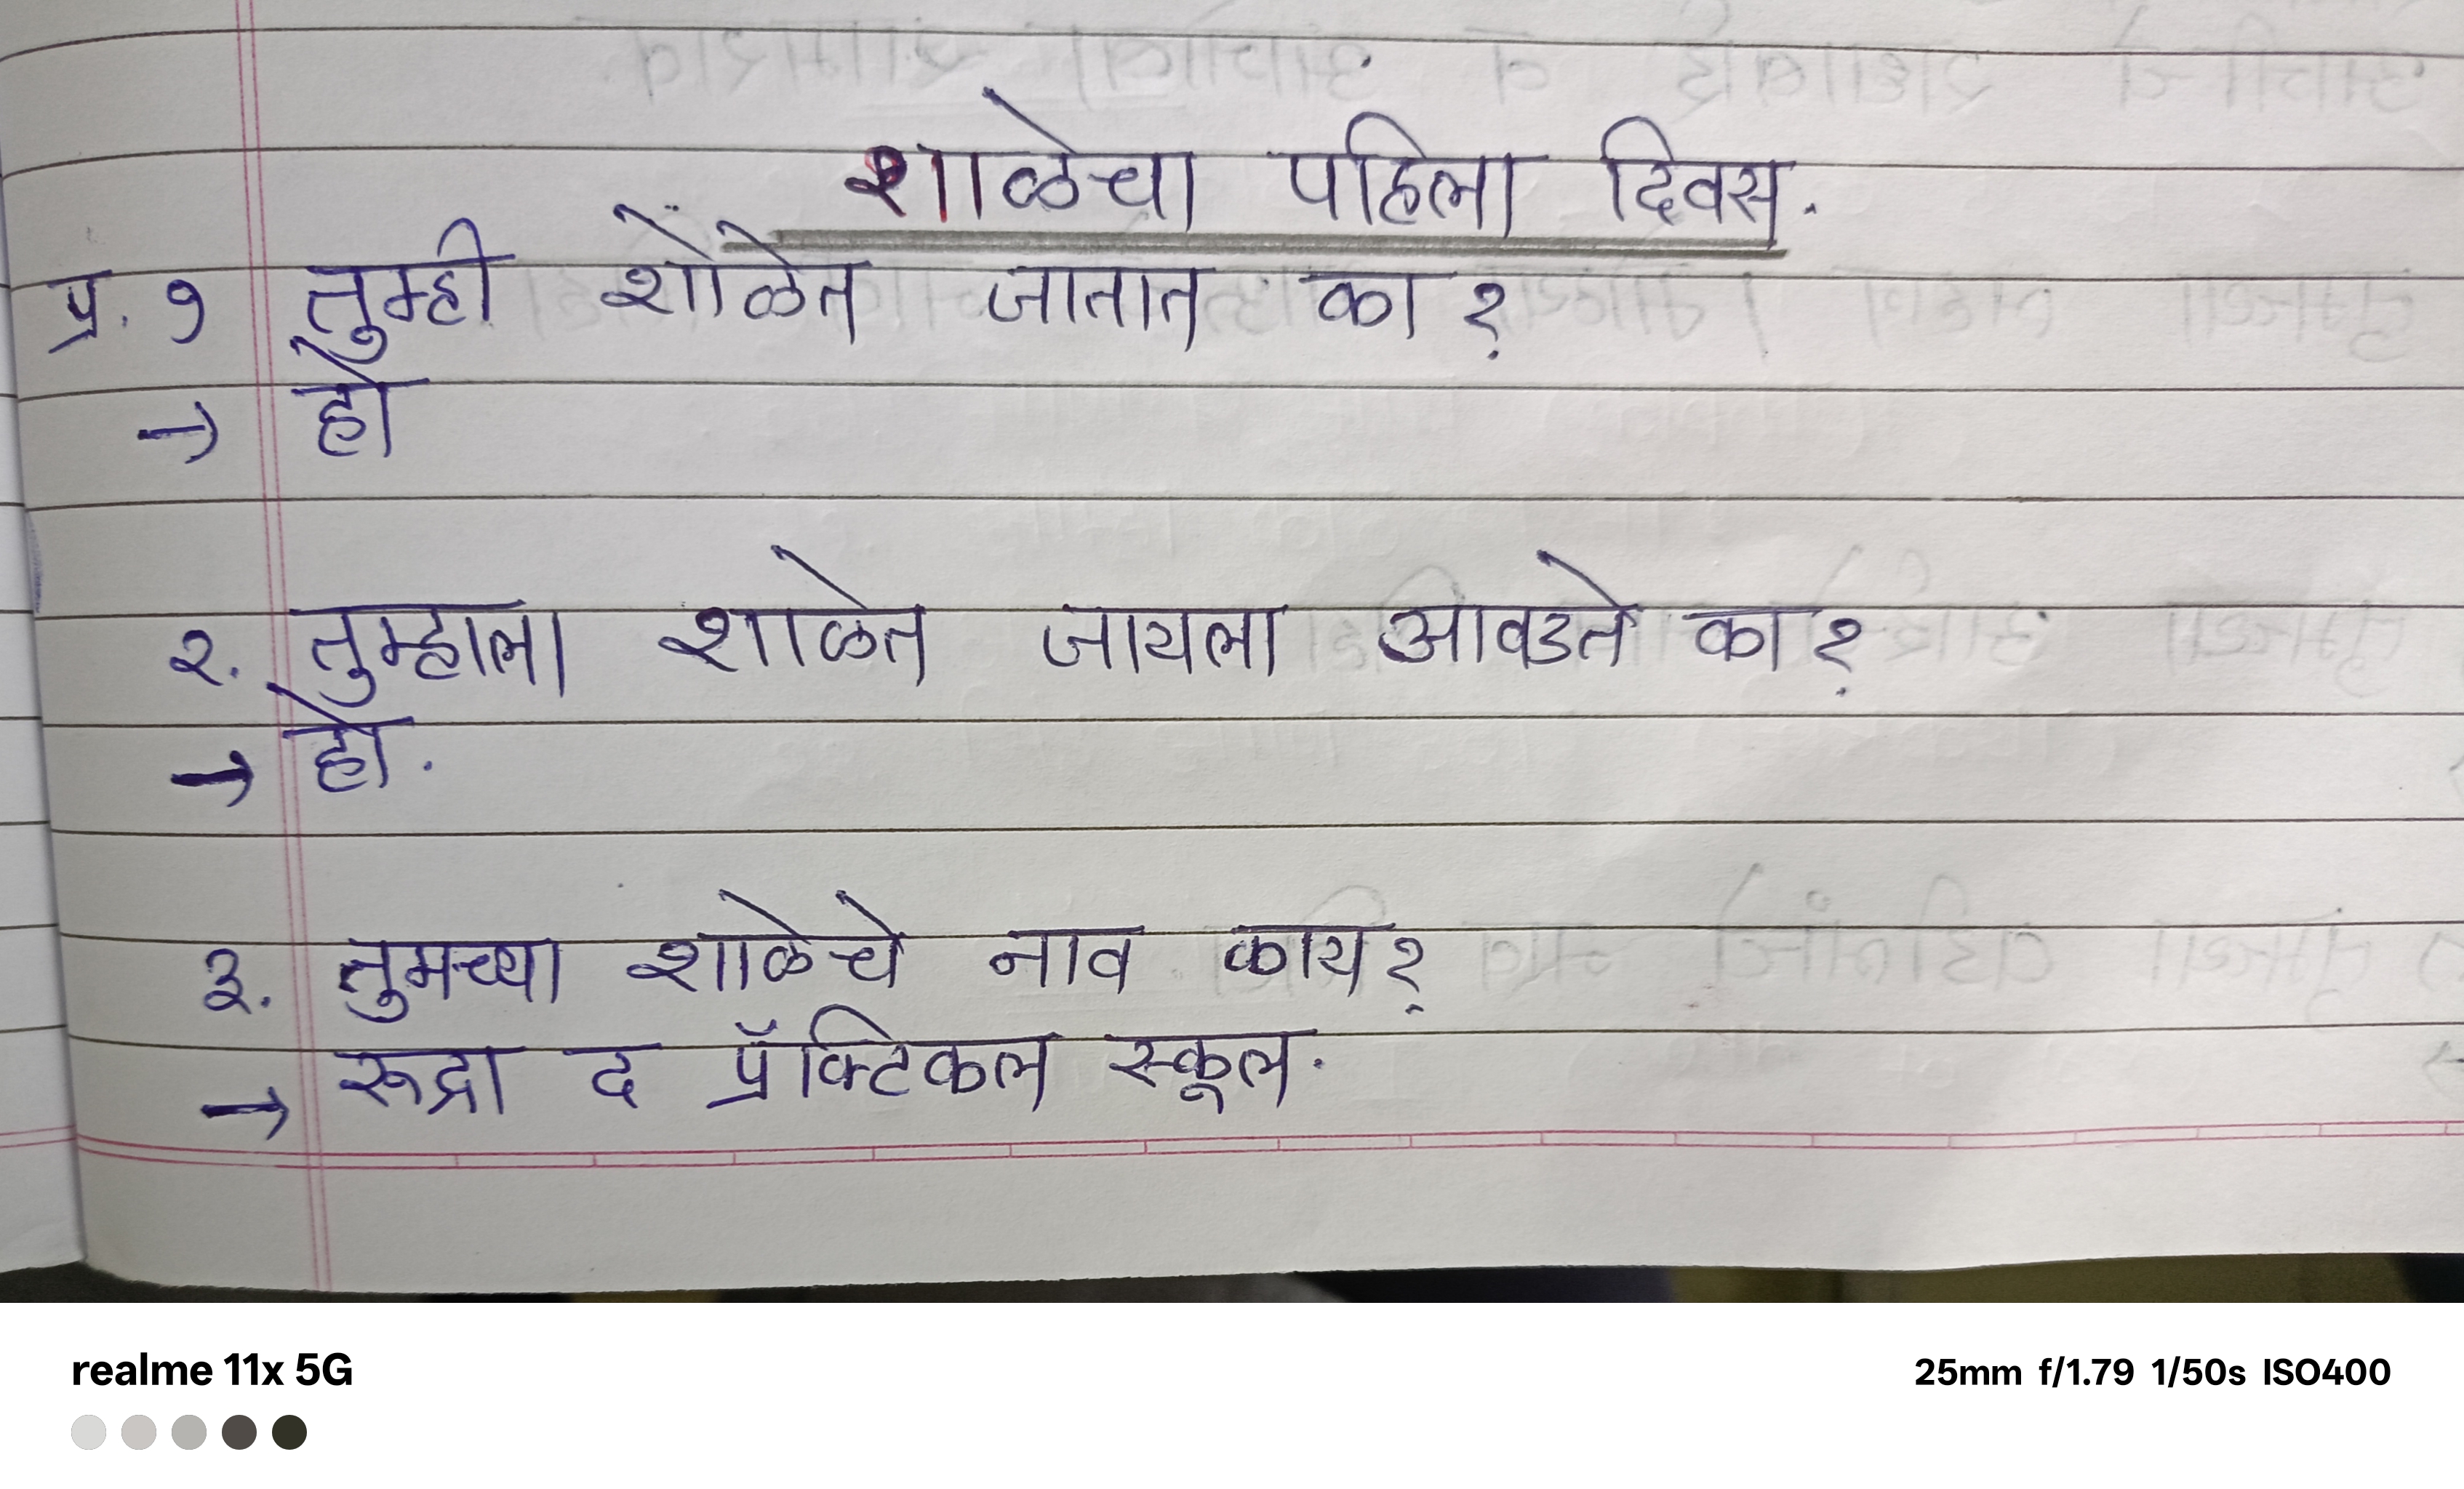 शाळेचा पहिला दिवस.
प्र. १ तुम्ही शोळेत जातात का?
→ हो
२. तुम्हाला शाळेत जायला आवडते का?
→ हो.
३. तुमच्या शाळेचे नाव काय?
→ रूद्रा द प्रॅक्टिकल स्कूल.
realme 11x 5G
25mm f/1.79 1/50s ISO400